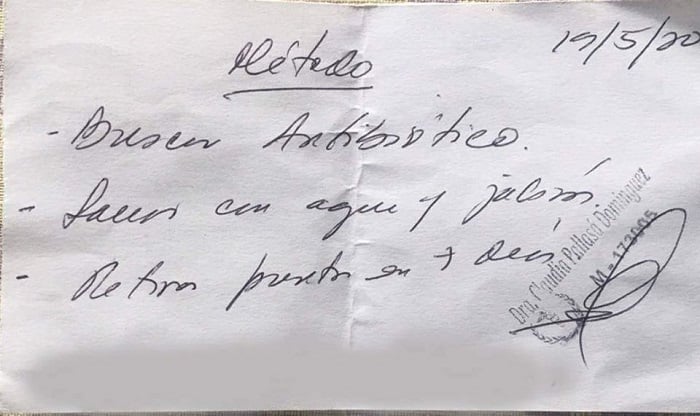 19/5/20
Método
- Buscar Antibiótico.
- Lavar con agua y jabón.
- Retirar puntos en 7 días
Dra. Claudia Pallasá Domínguez
M-173005